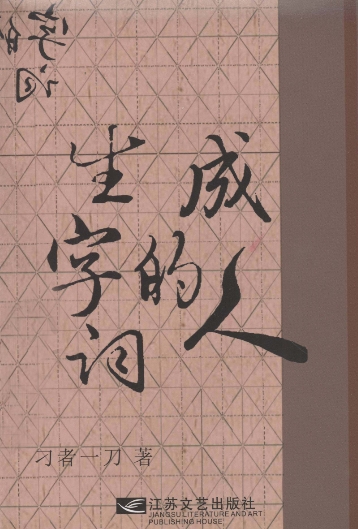 字词
成人
的
生字词
刁者一刀 著
江苏文艺出版社
JIANGSU LITERATURE AND ART
PUBLISHING HOUSE